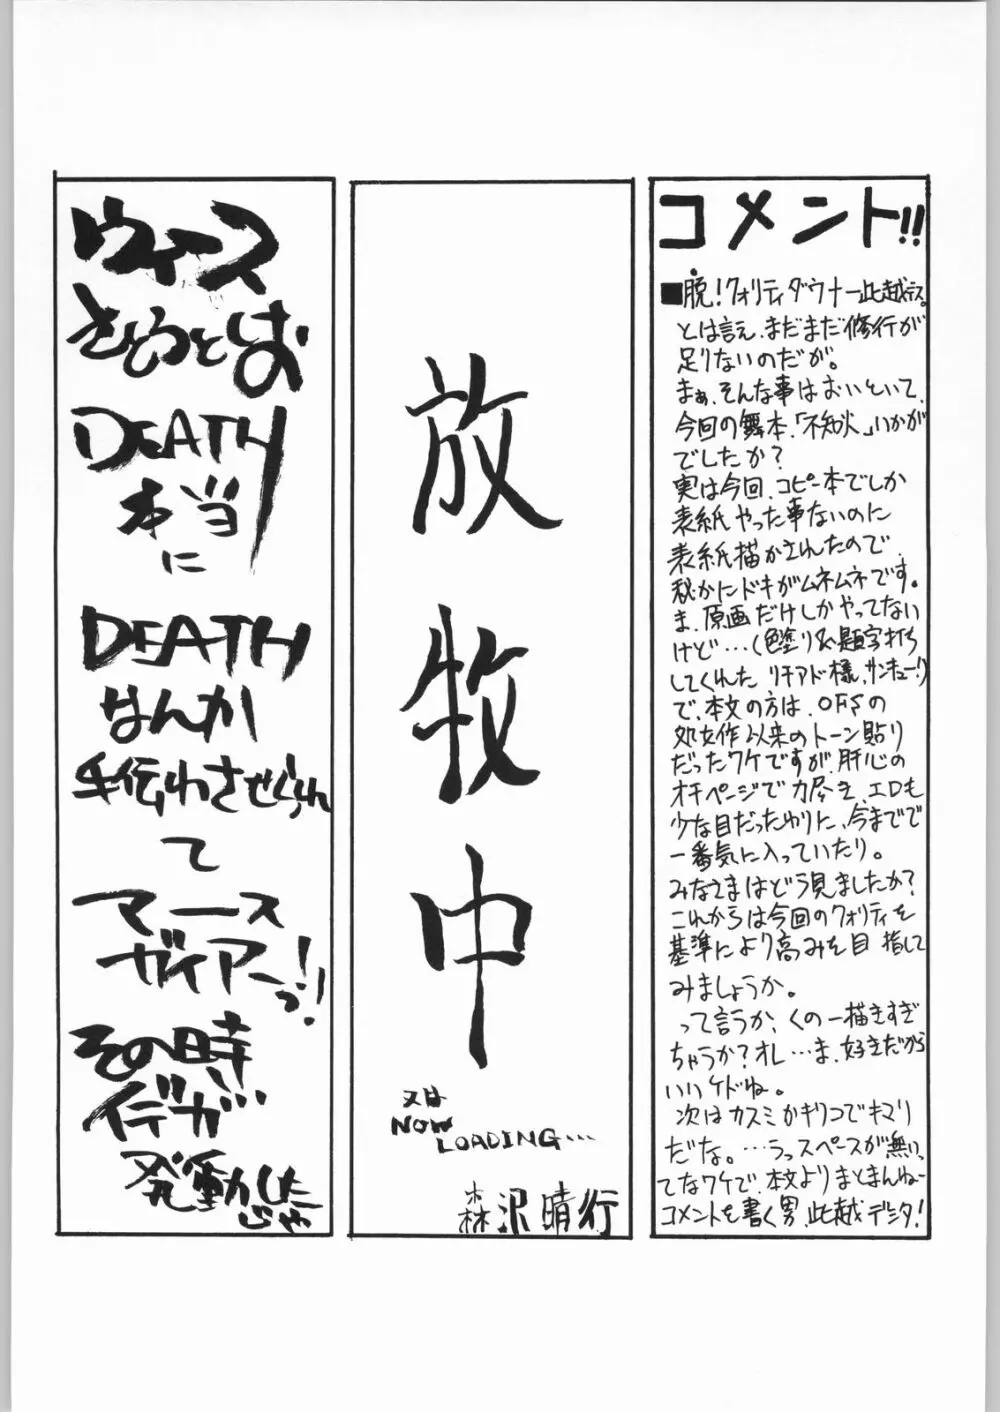 コメント!!
■脱!クォリティダウナー此越デス。
とは言え、まだまだ修行が
足りないのだが。
まぁ、そんな事はおいといて、
今回の舞本、「不知火」いかが
でしたか?
実は今回、コピー本でしか
表紙やった事ないのに
表紙描かされたので、
秘かにドキがムネムネです。
ま、原画だけしかやってない
けど…(色塗り&題字打ち
してくれた リチアド様、サンキュー!)
で、本文の方は、OFSの
処女作以来のトーン貼り
だったワケですが、肝心の
オチページで力尽き、エロも
少な目だったわりに、今までで
一番気に入っていたり。
みなさまはどう見ましたか?
これからは今回のクォリティを
基準により高みを目指して
みましょうか。
って言うか、くの一描きすぎ
ちゃうか?オレ…ま、好きだから
いいケドね。
次はカスミかギリコでキマリ
だな。…うっスペースが無いっ
てなワケで、本文よりまとまんねー
コメントを書く男、此越デシタ!
放牧中
又は
NOW
LOADING...
森沢晴行
ウィース
さとうとしお
DEATH
本当
に
DEATH
なんか
手伝わさせられ
て
マース
ガイアーっ!!
その時
イデが…
発動した
じゃ